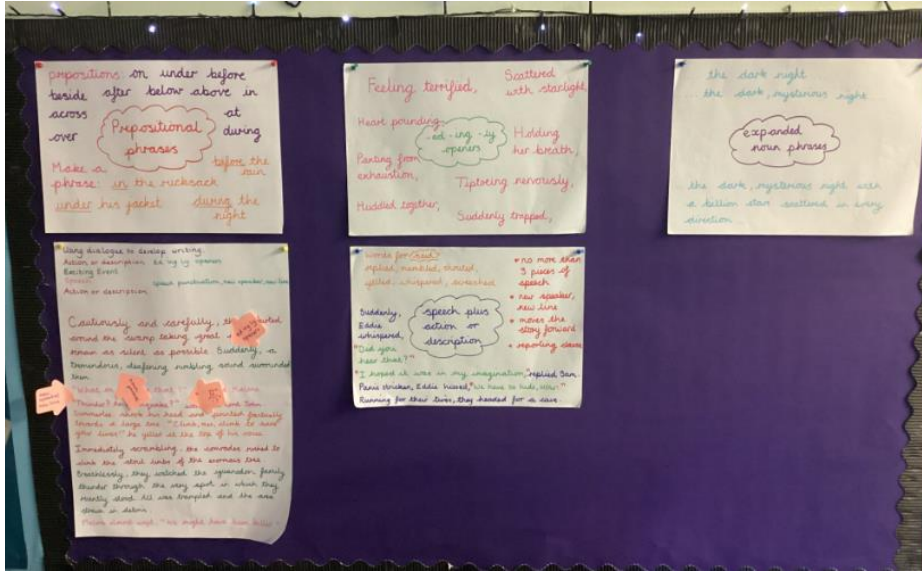 prepositions: on under before
beside after below above in
across at
over during
Prepositional
phrases
Make a
phrase: in the rucksack
before the
rain
under his jacket during the
night
Feeling terrified,
Scattered
with starlight,
Heart pounding,
-ed -ing -ly
openers
Holding
her breath,
Panting from
exhaustion,
Tiptoeing nervously,
Huddled together,
Suddenly trapped,
the dark night
the dark, mysterious night
expanded
noun phrases
the dark, mysterious night with
a billion stars scattered in every
direction
Using dialogue to develop writing
Action or description Ed ing ly openers
Exciting Event
Speech speech punctuation, new speaker, new line
Action or description
Cautiously and carefully, they started
around the swamp taking great
remain as silent as possible. Suddenly, a
tremendous, deafening rumbling sound surrounded
them.
"What that!"
"Thunder?
shook his head and pointed
towards a large tree.
your lives!" he yelled at the top of his voice
Immediately scrambling, the comrades raced to
climb the limbs of the enormous tree
Breathlessly, they watched the iguanodon family
thunder through the very spot in which they
stood. All was trampled and the area
in debris.
"We might have been killed
words for said:
replied, mumbled, shouted,
yelled, whispered, screeched
no more than
3 pieces of
speech
new speaker,
new line
moves the
story forward
reporting clause
speech plus
action or
description
Suddenly,
Eddie
whispered,
"Did you
hear that?"
"I hoped it was in my imagination," replied Sam.
Panic stricken, Eddie hissed, "We have to hide,
Running for their lives, they headed for a cave.